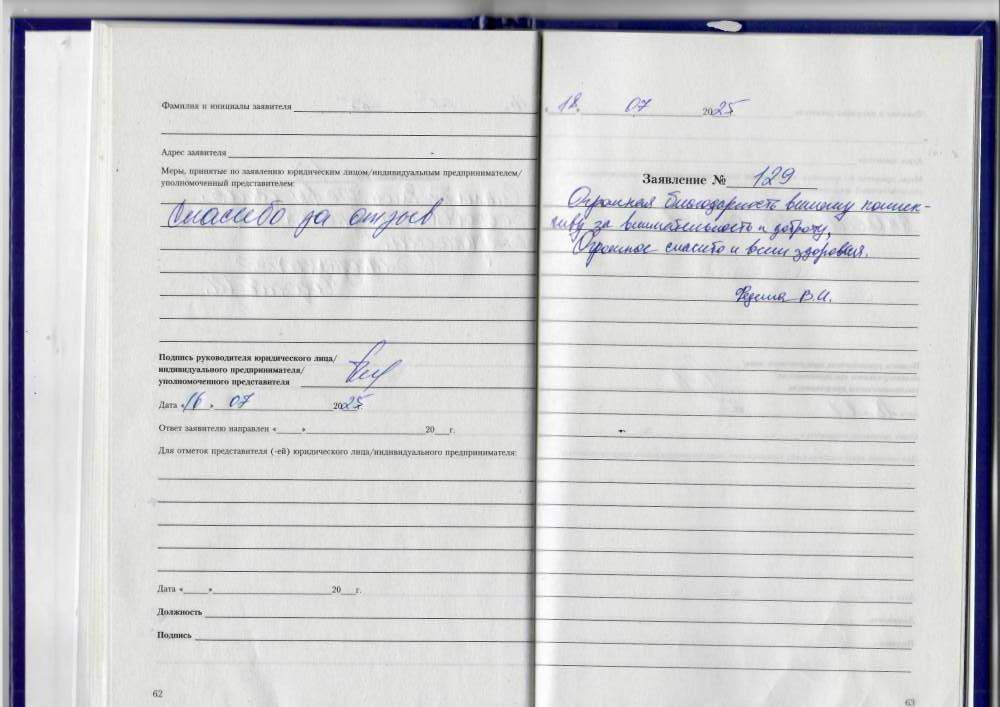 Фамилия и инициалы заявителя
Адрес заявителя
Меры, принятые по заявлению юридическим лицом/индивидуальным предпринимателем/
уполномоченный представителем:
Спасибо за отзыв
Подпись руководителя юридического лица/
индивидуального предпринимателя/
уполномоченного представителя
Дата «16» 07 2025.
Ответ заявителю направлен «___» 20__г.
Для отметок представителя (-ей) юридического лица/индивидуального предпринимателя:
Дата «___» 20__г.
Должность
Подпись
62
18 07 2025.
Заявление № 129
Огромная благодарность вашему коллек-
тиву за внимательность и доброту,
Огромное спасибо и всем здоровья.
В.И.
63